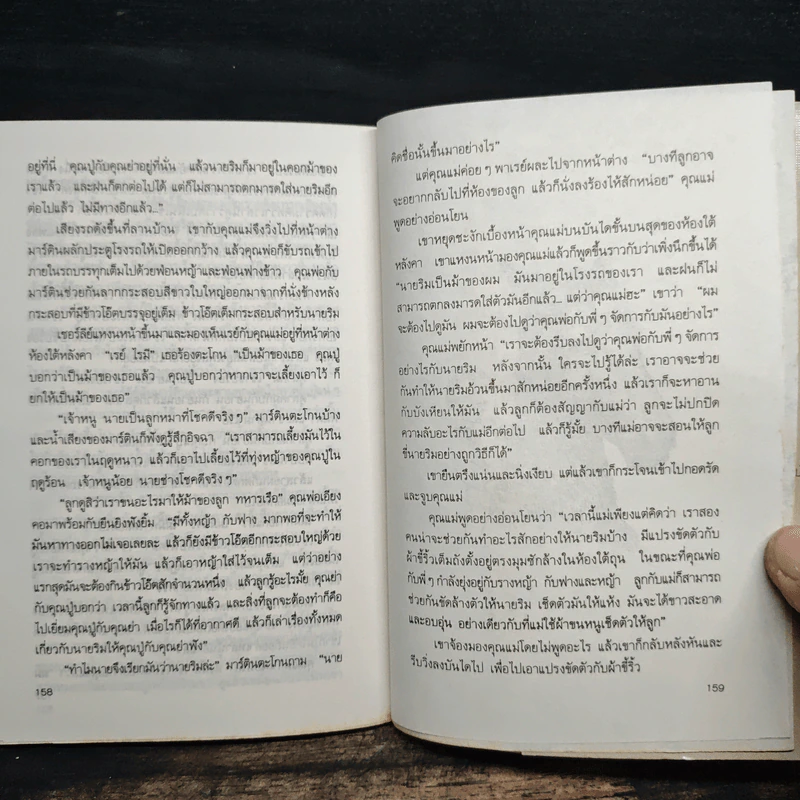 อยู่ที่นี่ คุณปู่กับคุณย่าอยู่ที่นั่น แล้วนายริมก็มาอยู่ในคอกม้าของ
เราแล้ว และฝนก็ตกต่อไปได้ แต่ก็ไม่สามารถตกมารดใส่นายริมอีก
ต่อไปแล้ว ไม่มีทางอีกแล้ว..."
เสียงรถดังขึ้นที่ลานบ้าน เขากับคุณแม่จึงวิ่งไปที่หน้าต่าง
มาร์ตินผลักประตูโรงรถให้เปิดออกกว้าง แล้วคุณพ่อก็ขับรถเข้าไป
ภายในรถบรรทุกเต็มไปด้วยฟ่อนหญ้าและฟ่อนฟางข้าว คุณพ่อกับ
มาร์ตินช่วยกันลากกระสอบสีขาวใบใหญ่ออกมาจากที่นั่งข้างหลัง
กระสอบที่มีข้าวโอ๊ตบรรจุอยู่เต็ม ข้าวโอ๊ตเต็มกระสอบสำหรับนายริม
เชอร์ลีย์แหงนหน้าขึ้นมาและมองเห็นเรย์กับคุณแม่อยู่ที่หน้าต่าง
ห้องใต้หลังคา "เรย์ ไรมี" เธอร้องตะโกน "เป็นม้าของเธอ คุณปู่
บอกว่าเป็นม้าของเธอแล้ว คุณปู่บอกว่าหากเราจะเลี้ยงเอาไว้ ก็
ยกให้เป็นม้าของเธอ"
"เจ้าหนู นายเป็นลูกหมาที่โชคดีจริงๆ" มาร์ตินตะโกนบ้าง
และน้ำเสียงของมาร์ตินก็ฟังดูรู้สึกอิจฉา "เราสามารถเลี้ยงมันไว้ใน
คอกของเราในฤดูหนาว แล้วก็เอาไปเลี้ยงไว้ที่ทุ่งหญ้าของคุณปู่ใน
ฤดูร้อน เจ้าหนูน้อย นายช่างโชคดีจริงๆ"
"ลูกดูสิว่าเราขนอะไรมาให้ม้าของลูก ทหารเรือ" คุณพ่อเอียง
คอมาพร้อมกับยืนยิงฟังยิ้ม "มีทั้งหญ้า กับฟาง มากพอที่จะทำให้
มันหาทางออกไม่เจอเลยละ แล้วก็ยังมีข้าวโอ๊ตอีกกระสอบใหญ่ด้วย
เราจะทำรางหญ้าให้มัน แล้วก็เอาหญ้าใส่ไว้จนเต็ม แต่ว่าอย่าง
แรกสุดมันจะต้องกินข้าวโอ๊ตสักจำนวนหนึ่ง แล้วลูกรู้อะไรมั้ย คุณย่า
กับคุณปู่บอกว่า เวลานี้ลูกก็รู้จักทางแล้ว และสิ่งที่ลูกจะต้องทำก็คือ
ไปเยี่ยมคุณปู่กับคุณย่า เมื่อไรก็ได้ที่อากาศดี แล้วก็เล่าเรื่องทั้งหมด
เกี่ยวกับนายริมให้คุณปู่กับคุณย่าฟัง"
"ทำไมนายจึงเรียกมันว่านายริมล่ะ" มาร์ตินตะโกนถาม "นาย
158
คิดชื่อนั้นขึ้นมาอย่างไร"
แต่คุณแม่ค่อยๆ พาเรย์ผละไปจากหน้าต่าง "บางทีลูกอาจ
จะอยากกลับไปที่ห้องของลูก แล้วก็นั่งลงร้องไห้สักหน่อย" คุณแม่
พูดอย่างอ่อนโยน
เขาหยุดชะงักเบื้องหน้าคุณแม่บนบันไดขั้นบนสุดของห้องใต้
หลังคา เขาแหงนหน้ามองคุณแม่แล้วก็พูดขึ้นราวกับว่าเพิ่งนึกขึ้นได้
"นายริมเป็นม้าของผม มันมาอยู่ในโรงรถของเรา และฝนก็ไม่
สามารถตกลงมารดใส่ตัวมันอีกแล้ว... แต่ว่าคุณแม่ฮะ" เขาว่า "ผม
จะต้องไปดูมัน ผมจะต้องไปดูว่าคุณพ่อกับพี่ๆ จัดการกับมันอย่างไร"
คุณแม่พยักหน้า "เราจะต้องรีบลงไปดูว่าคุณพ่อกับพี่ๆ จัดการ
อย่างไรกับนายริม หลังจากนั้น ใครจะไปรู้ได้ล่ะ เราอาจจะช่วย
กันทำให้นายริมอ้วนขึ้นมาสักหน่อยอีกครั้งหนึ่ง แล้วเราก็จะหาอาน
กับบังเหียนให้มัน แล้วลูกก็ต้องสัญญากับแม่ว่า ลูกจะไม่ปกปิด
ความลับอะไรกับแม่อีกต่อไป แล้วก็รู้มั้ย บางทีแม่อาจจะสอนให้ลูก
ขี่นายริมอย่างถูกวิธีก็ได้"
เขายืนตรึงแน่นและนิ่งเงียบ แต่แล้วเขาก็กระโจนเข้าไปกอดรัด
และจูบคุณแม่
คุณแม่พูดอย่างอ่อนโยนว่า "เวลานี้แม่เพียงแต่คิดว่า เราสอง
คนน่าจะช่วยกันทำอะไรสักอย่างให้นายริมบ้าง มีแปรงขัดตัวกับ
ผ้าขี้ริ้วเต็มถังตั้งอยู่ตรงมุมซักล้างในห้องใต้ถุน ในขณะที่คุณพ่อ
กับพี่ๆ กำลังยุ่งอยู่กับรางหญ้า กับฟางและหญ้า ลูกกับแม่ก็สามารถ
ช่วยกันขัดล้างตัวให้นายริม เช็ดตัวมันให้แห้ง มันจะได้ขาวสะอาด
และอบอุ่น อย่างเดียวกับที่แม่ใช้ผ้าขนหนูเช็ดตัวให้ลูก"
เขาจ้องมองคุณแม่โดยไม่พูดอะไร แล้วเขาก็กลับหลังหันและ
รีบวิ่งลงบันไดไป เพื่อไปเอาแปรงขัดตัวกับผ้าขี้ริ้ว
159